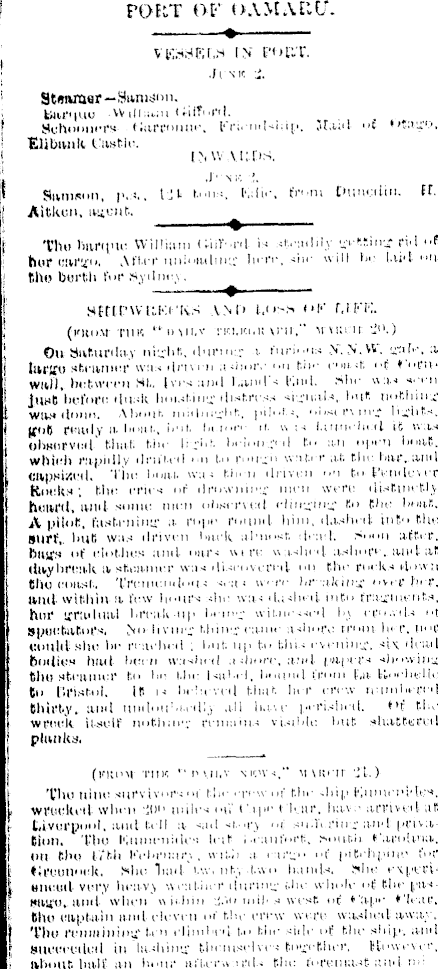 PORT OF OAMARU.
VESSELS IN PORT.
JUNE 2.
Steamer—Samson.
Barque—William Gifford.
Schooners—Garronne, Friendship, Maid of Otago,
Elibank Castle.
INWARDS.
JUNE 2.
Samson, p.s., 124 tons, Edie, from Dunedin. H.
Aitken, agent.
The barque William Gifford is steadily getting rid of
her cargo. After unloading here, she will be laid on
the berth for Sydney.
SHIPWRECKS AND LOSS OF LIFE.
(FROM THE "DAILY TELEGRAPH," MARCH 20.)
On Saturday night, during a furious N.N.W. gale, a
large steamer was driven ashore on the coast of Corn-
wall, between St. Ives and Land's End. She was seen
just before dusk hoisting distress signals, but nothing
was done. About midnight, pilots, observing lights,
got ready a boat, but before it was launched it was
observed that the light belonged to an open boat,
which rapidly drifted on to rough water at the bar, and
capsized. The boat was then driven on to
Rocks; the cries of drowning men were distinctly
heard, and some men observed clinging to the boat.
A pilot, fastening a rope round him, dashed into the
surf, but was driven back almost dead. Soon after,
bags of clothes and oars were washed ashore, and at
daybreak a steamer was discovered on the rocks down
the coast. Tremendous seas were breaking over her,
and within a few hours she was dashed into fragments,
her gradual break-up being witnessed by crowds of
spectators. No living thing came ashore from her, nor
could she be reached; but up to this evening, six dead
bodies had been washed ashore, and papers showing
the steamer to be the Isabel, bound from La Rochelle
to Bristol. It is believed that her crew numbered
thirty, and undoubtedly all have perished. Of the
wreck itself nothing remains visible but shattered
planks.
(FROM THE "DAILY NEWS," MARCH 21.)
The nine survivors of the crew of the ship Eumenides,
wrecked when 200 miles off Cape Clear, have arrived at
Liverpool, and tell a sad story of suffering and priva-
tion. The Eumenides left Beaufort, South Carolina,
on the 17th February, with a cargo of pitchpine for
Greenock. She had twenty-two hands. She experi-
enced very heavy weather during the whole of the pas-
sage, and when within 250 miles west of Cape Clear,
the captain and eleven of the crew were washed away.
The remaining ten climbed to the side of the ship, and
succeeded in lashing themselves together. However,
about half an hour afterwards the foremast and